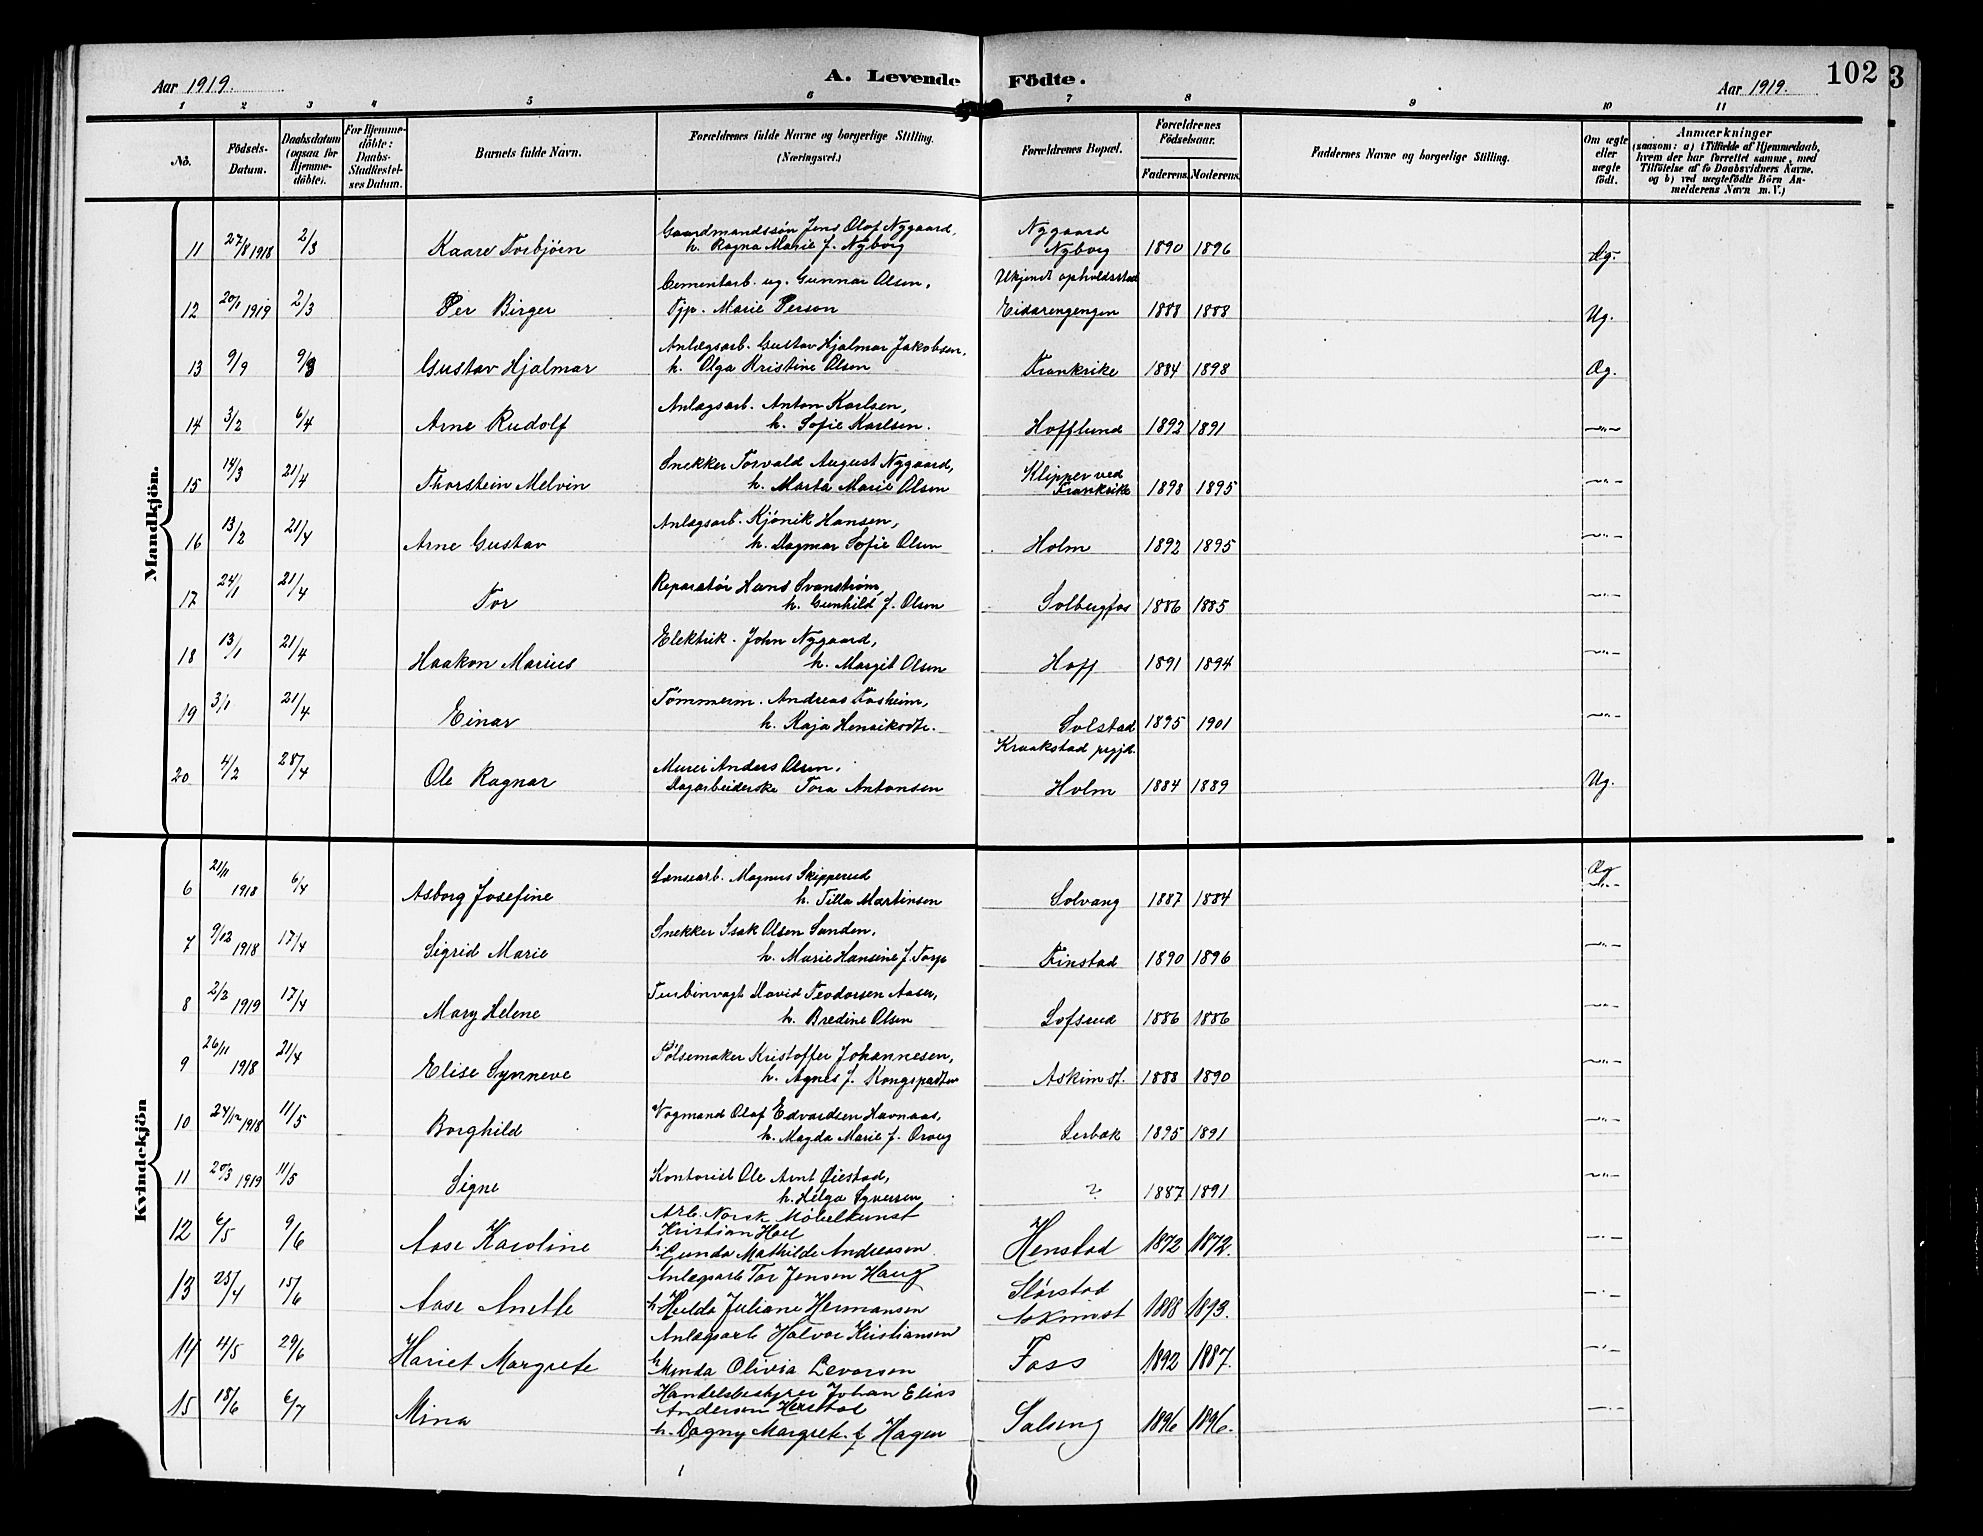 Aar 1919.
A. Levende Födte.
Aar 1919.
102
3
1 2 3 4 5 6 7 8 9 10 11
No.
Födsels-Datum.
Daabsdatum (ogsaa for Hjemme-döbte).
For Hjemme-döbte: Daabs-Stadfæstel-ses Datum.
Barnets fulde Navn.
Forældrenes fulde Navne og borgerlige Stilling. (Næringsvei.)
Forældrenes Bopæl.
Forældrenes Födselsaar.
Faderens. Moderens.
Faddernes Navne og borgerlige Stilling.
Om ægte eller uægte födt.
Anmærkninger
(saasom: a) i Tilfælde af Hjemmedaab, hvem der har forrettet samme, med Tilföielse af to Daabsvidners Navne, og b) ved uægtefödte Börn An-melderens Navn m. V.)
Mandkjön.
11 27/8 1918 2/3 Kaare Torbjörn Gaardmandssön Jens Olaf Nygaard, h. Ragna Marie f. Nyborg Nygaard Nyborg 1890 1896 Æg.
12 20/1 1919 2/3 Per Birger Cementarb. ug. Gunnar Olsen, Pjp. Marie Person Ukjent opholdssted Eidarengengen 1888 1888 Ug.
13 9/9 9/3 Gustav Hjalmar Anlægsarb. Gustav Hjalmar Jakobsen, h. Olga Kristine Olsen Frankrike 1884 1898 Æg.
14 3/2 6/4 Arne Rudolf Anlægsarb. Anton Karlsen, h. Sofie Karlsen. Hofflund 1892 1891 —"—
15 14/3 21/4 Thorstein Melvin Snekker Torvald August Nygaard, h. Marta Marie Olsen Klipper ved Frankrike 1898 1895 —"—
16 13/2 21/4 Arne Gustav Anlægsarb. Kjönik Hansen, h. Dagmar Sofie Olsen Holm 1892 1895 —"—
17 24/1 21/4 Tor Reparatør Hans Svanstrøm, h. Gunhild f. Olsen Solbergfos 1886 1885 —"—
18 13/1 21/4 Haakon Marius Elektrik. John Nygaard, h. Margit Olsen Hoff 1891 1894 —"—
19 3/1 21/4 Einar Tömmerm. Andreas Fosheim, h. Kaja Henriksdtr. Solstad 1895 1901 —"—
20 4/2 28/4 Ole Ragnar Murer Anders Olsen, Dagarbeiderske Tora Antonsen Kraakstad prgjd. Holm 1884 1889 Ug.
Kvindekjön
6 21/11 1918 6/4 Asborg Josefine Lænsearb. Magnus Skipperud h. Tilla Martinsen Solvang 1887 1884 Æg —"—
7 9/12 1918 17/4 Sigrid Marie Snekker Isak Olsen Sanden, h. Marie Hansine f. Torp Finstad 1890 1896 —"—
8 2/2 1919 17/4 Mary Helene Turbinvagt David Teodorsen Aaser, h. Bredine Olsen Lofsrud 1886 1886 —"—
9 26/11 1918 21/4 Elise Synneve Pölsemaker Kristoffer Johannesen, h. Agnes f. Kongspadten Askim st. 1888 1890 —"—
10 24/12 1918 11/5 Borghild Vogmand Olaf Edvardsen Havnaas, h. Magda Marie f. Orveg Lerbæk 1895 1891 —"—
11 20/3 1919 11/5 Signe Kontorist Ole Arnt Øiestad, h. Helga Syversen ? 1887 1891 —"—
12 6/5 9/6 Aase Karoline Arb. Norsk Möbelkunst Kristian Hoel h. Gunda Mathilde Andreasen Henstad 1872 1872. —"—
13 25/4 15/6 Aase Anette Anlægsarb Tor Jensen Haug h Hulda Juliane Hermansen Slörstad Askimst 1888 1893. —"—
14 4/5 29/6 Hariet Margrete Anlægsarb Halvor Kristiansen h Minda Olivia Levorsen Foss 1892 1887. —"—
15 18/6 6/7 Mina Handelsbestyrer Johan Elias Andersen Herstad h. Dagny Margrete f Hagen Salseng 1896 1896. —"—